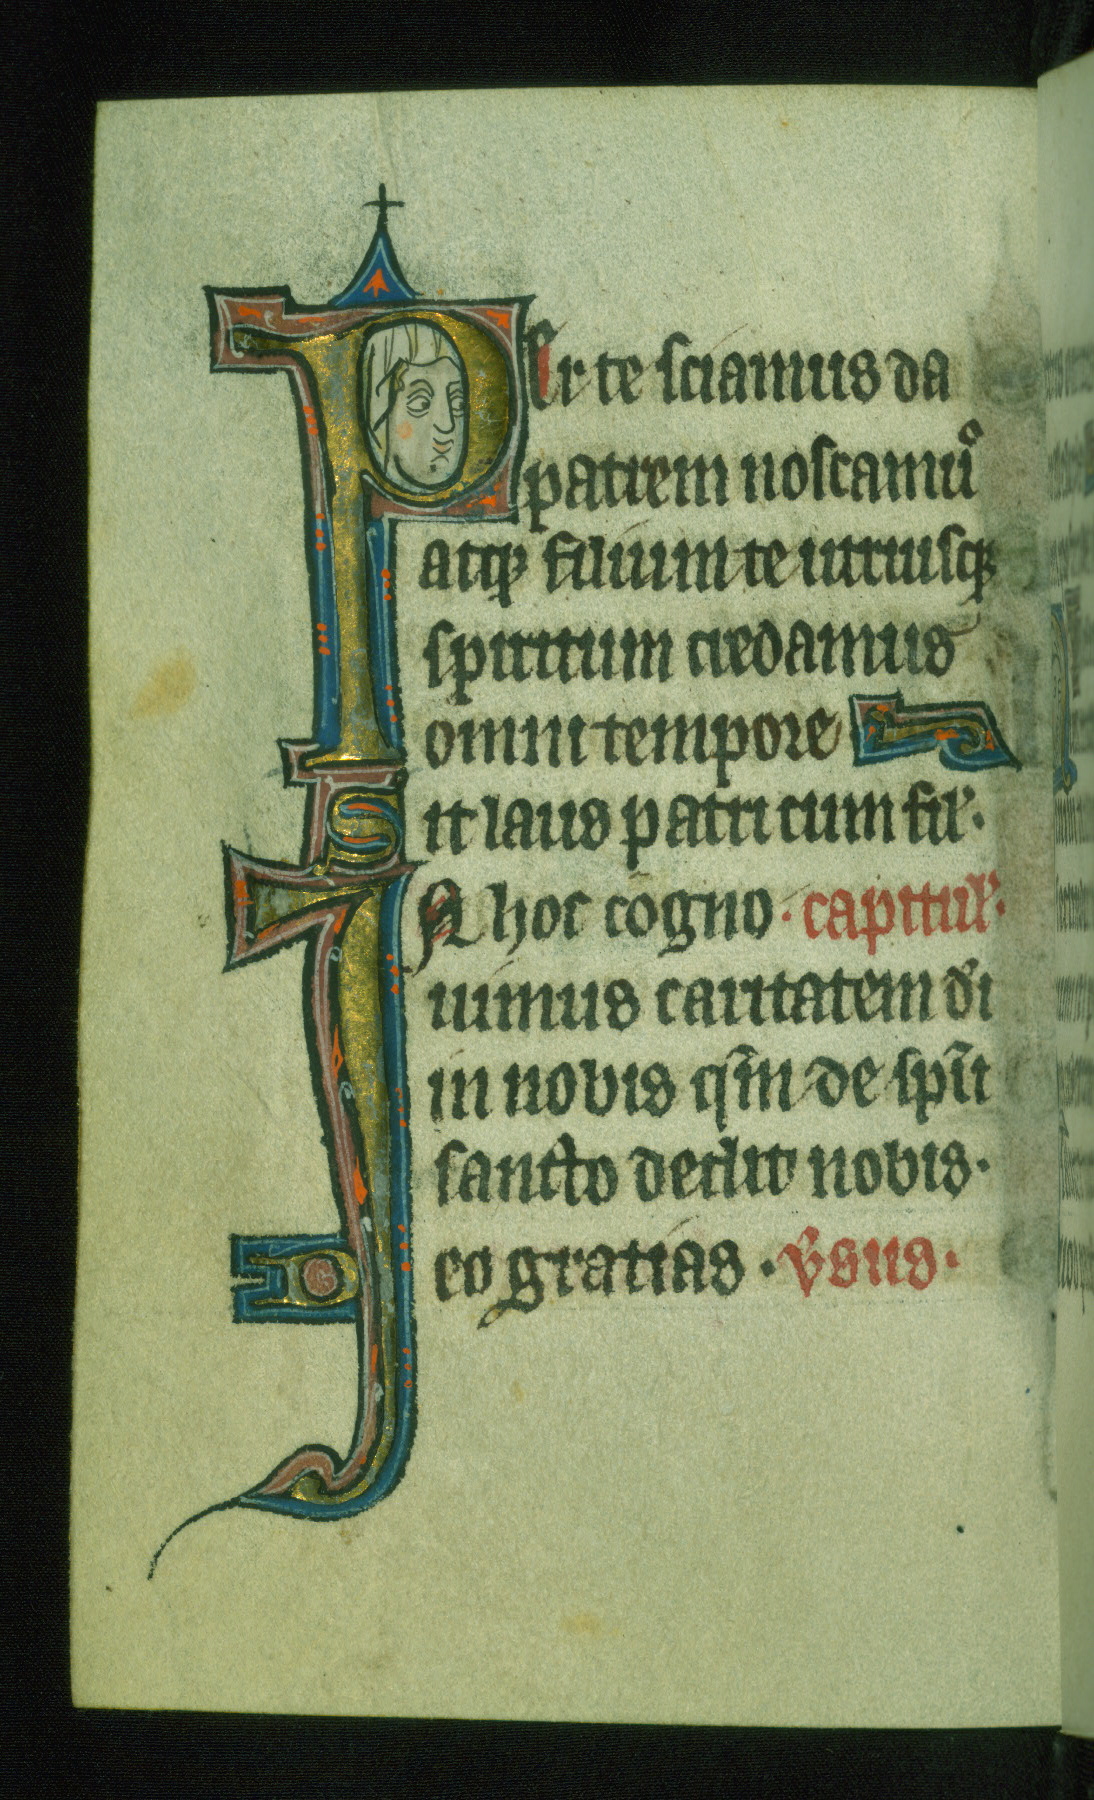 Per te sciamus da
patrem noscamuˀ
atqꝫ filium te utriusqꝫ
spiritum credamus
omni tempore
Sit laus patri cum fil̛.
In hoc cogno. capitul̛.
uimus caritatem dei
in nobis qm̄ de spū
sancto dedit nobis.
Deo gratias. v̛sus.